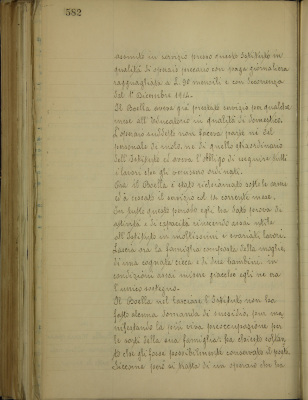 582
assunto in servizio presso questo Istituto in
qualità di operaio precario con paga giornaliera
ragguagliata a L. 90 mensili e con decorrenza
dal 1° Dicembre 1914.
Il Boella aveva già prestato servizio per qualche
mese all'Educatorio in qualità di domestico.
L'operaio suddetto non faceva parte nè del
personale di ruolo, nè di quello straordinario
dell'Istituto ed aveva l'obbligo di eseguire tutti
i lavori che gli venivano ordinati.
Ora il Boella è stato richiamato sotto le armi
ed ha cessato il servizio col corrente mese.
In tutto questo periodo egli ha dato prova di
attività e di capacità riuscendo assai utile
all'Istituto in moltissimi e svariati lavori.
Lascia ora la famiglia composta della moglie,
di una cognata cieca e di due bambini in
condizioni assai misere giacchè egli ne era
l'unico sostegno.
Il Boella nel lasciare l'Istituto non ha
fatto alcuna domanda di sussidio, pur ma-
nifestando la più viva preoccupazione per
le sorti della sua famiglia; ha chiesto soltan-
to che gli fosse possibilmente conservato il posto.
Siccome però si tratta di un operaio che ha